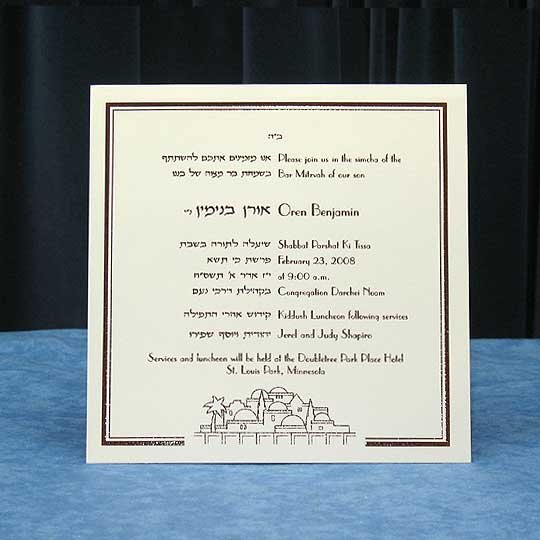 ב"ה
אנו מזמינים אתכם להשתתף Please join us in the simcha of the
בשמחת בר מצוה של בננו Bar Mitzvah of our son
אורן בנימין נ"י Oren Benjamin
שיעלה לתורה בשבת Shabbat Parshat Ki Tissa
פרשת כי תשא February 23, 2008
י"ז אדר א' תשס"ח at 9:00 a.m.
בקהילת דרכי נעם Congregation Darchei Noam
קידוש אחרי התפילה Kiddush Luncheon following services
יהודית ויוסף שפירו Jerel and Judy Shapiro
Services and luncheon will be held at the Doubletree Park Place Hotel
St. Louis Park, Minnesota